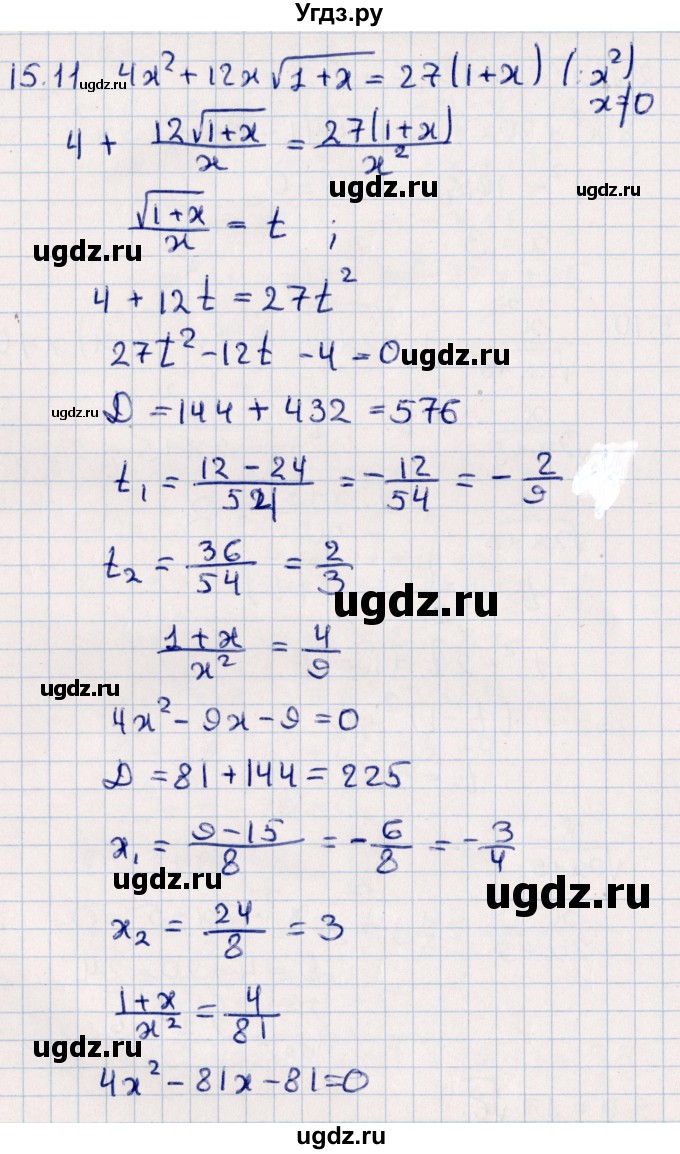 Угдз.ру
15.11 ugdz.ru 4x² + 12x √(1+x) = 27(1+x) (: x²)
x≠0
4 + 12√(1+x)/x = 27(1+x)/x²
ugdz.ru ugdz.ru
√(1+x)/x = t ;
ugdz.ru
4 + 12t = 27t²
27t² - 12t - 4 = 0 ugdz.ru
ugdz.ru D = 144 + 432 = 576
t₁ = (12 - 24)/54 = -12/54 = -2/9
t₂ = 36/54 = 2/3
ugdz.ru
(1+x)/x² = 4/9
ugdz.ru
4x² - 9x - 9 = 0
D = 81 + 144 = 225
x₁ = (9-15)/8 = -6/8 = -3/4
ugdz.ru ugdz.ru
x₂ = 24/8 = 3
(1+x)/x² = 4/81
ugdz.ru ugdz.ru
4x² - 81x - 81 = 0
ugdz.ru